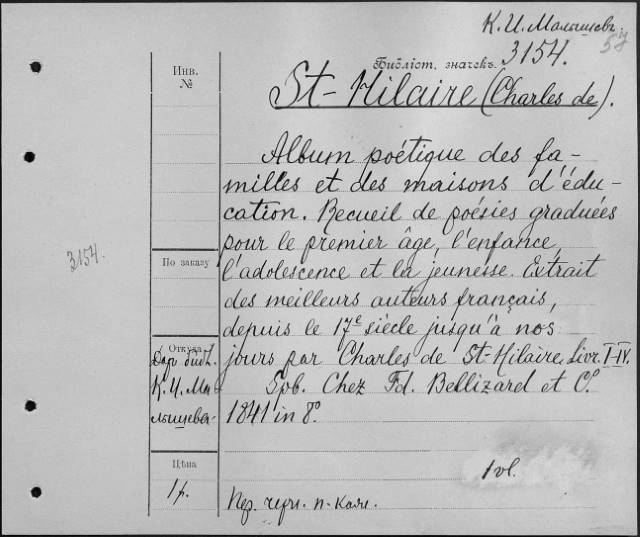 К. И. Малышевъ
57
Библіот. значекъ 3154.
Инв.
№
St-Hilaire (Charles de).
Album poétique des fa-
milles et des maisons d'édu-
cation. Recueil de poésies graduées
pour le premier âge, l'enfance,
l'adolescence et la jeunesse. Extrait
des meilleurs auteurs français,
depuis le 17e siècle jusqu'à nos
jours par Charles de St-Hilaire. Livr. I-IV.
Spb. Chez Fd. Bellizard et Co.
1841 in 8o.
1 vl.
Пер. черн. п-кол.
3154.
По заказу
Откуда
Дар библ.
К. И. Ма-
лышева
Цѣна
1 р.